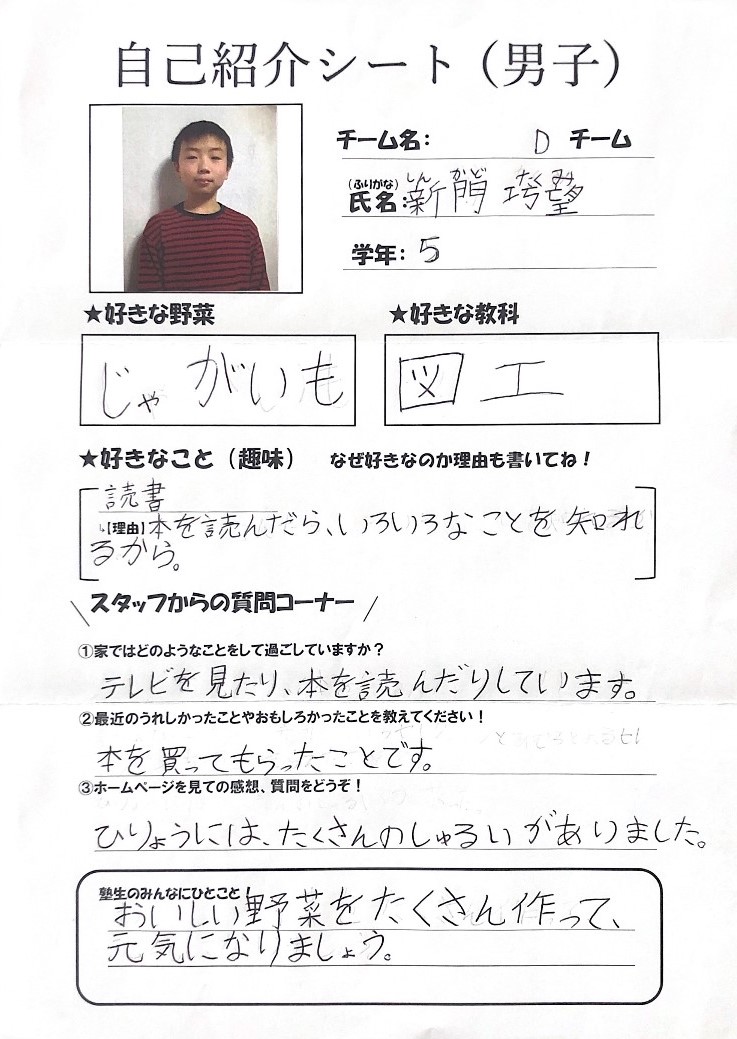 自己紹介シート（男子）
チーム名： D チーム
(ふりがな) しん かど たく み
氏名：新門 巧望
学年：5
★好きな野菜
じゃがいも
★好きな教科
図工
★好きなこと（趣味） なぜ好きなのか理由も書いてね！
読書
↳【理由】本を読んだら、いろいろなことを知れ
るから。
スタッフからの質問コーナー
①家ではどのようなことをして過ごしていますか？
テレビを見たり、本を読んだりしています。
②最近のうれしかったことやおもしろかったことを教えてください！
本を買ってもらったことです。
③ホームページを見ての感想、質問をどうぞ！
ひりょうには、たくさんのしゅるいがありました。
塾生のみんなにひとこと！
おいしい野菜をたくさん作って、
元気になりましょう。